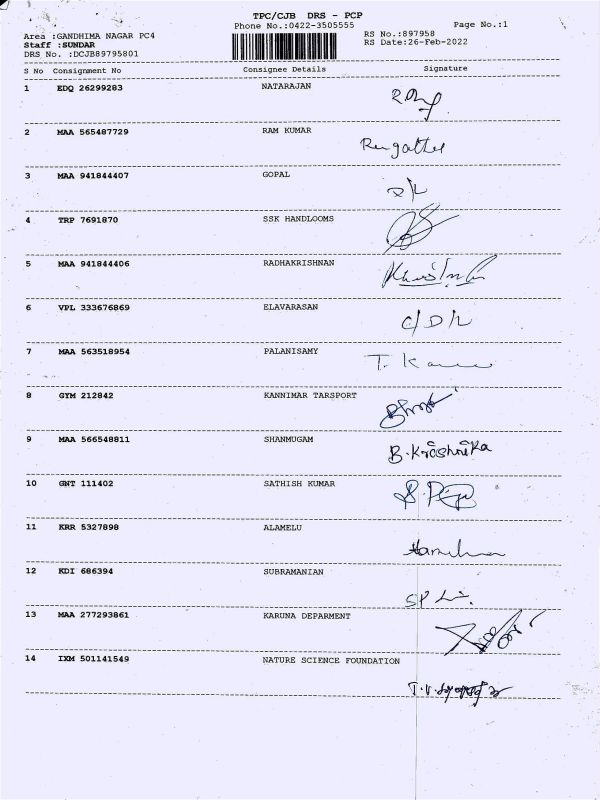 TPC/CJB DRS - PCP
Phone No.:0422-3505555
Page No.:1
Area :GANDHIMA NAGAR PC4
Staff :SUNDAR
DRS No. :DCJB89795801
RS No.:897958
RS Date:26-Feb-2022
S No Consignment No Consignee Details Signature
1 EDQ 26299283 NATARAJAN
2 MAA 565487729 RAM KUMAR
3 MAA 941844407 GOPAL
4 TRP 7691870 SSK HANDLOOMS
5 MAA 941844406 RADHAKRISHNAN
6 VPL 333676869 ELAVARASAN
C/D/L
7 MAA 563518954 PALANISAMY
8 GYM 212842 KANNIMAR TARSPORT
9 MAA 566548811 SHANMUGAM
10 GNT 111402 SATHISH KUMAR
11 KRR 5327898 ALAMELU
12 KDI 686394 SUBRAMANIAN
13 MAA 277293861 KARUNA DEPARMENT
14 IXM 501141549 NATURE SCIENCE FOUNDATION